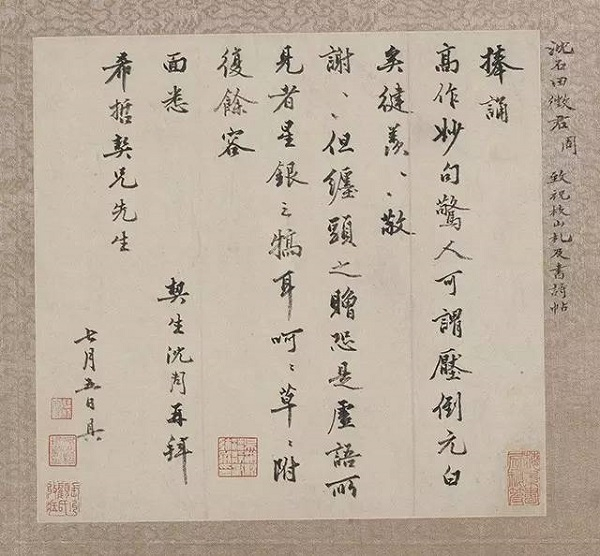 沈石田徵君周 致祝枝山札及書詩帖
捧誦
高作妙句驚人可謂壓倒元白
矣健羨、、敬
謝、、但纏頭之贈恐是虛語所
見者星銀之犒耳呵、、草、、附
復餘容
面悉
契生沈周再拜
希哲契兄先生
七月五日具